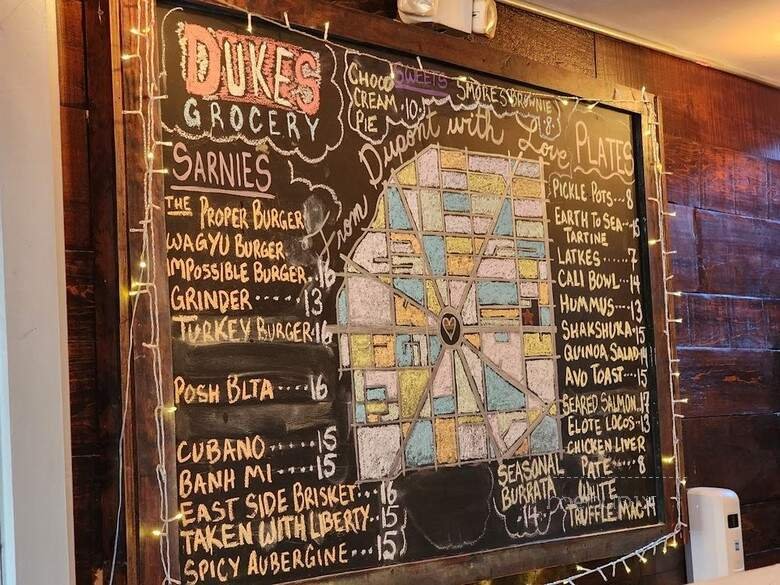 DUKES
GROCERY
SARNIES
THE PROPER BURGER
WAGYU BURGER
IMPOSSIBLE BURGER..16
GRINDER.....13
TURKEY BURGER.16
POSH BLTA....16
CUBANO......15
BANH MI....15
EAST SIDE BRISKET...16
TAKEN WITH LIBERTY..15
SPICY AUBERGINE...15
SWEETS
CHOCO
CREAM
PIE
.10.
SMORES BROWNIE
8
From Dupont with Love
PLATES
PICKLE POTS..8
EARTH TO SEA..15
TARTINE
LATKES.....7
CALI BOWL..14
HUMMUS...13
SHAKSHUKA.15
QUINOA SALAD.14
AVO TOAST...15
SEARED SALMON.17
ELOTE LOCOS.13
CHICKEN LIVER
PATE....8
WHITE
TRUFFLE MAC.14
SEASONAL
BURRATA
.14.